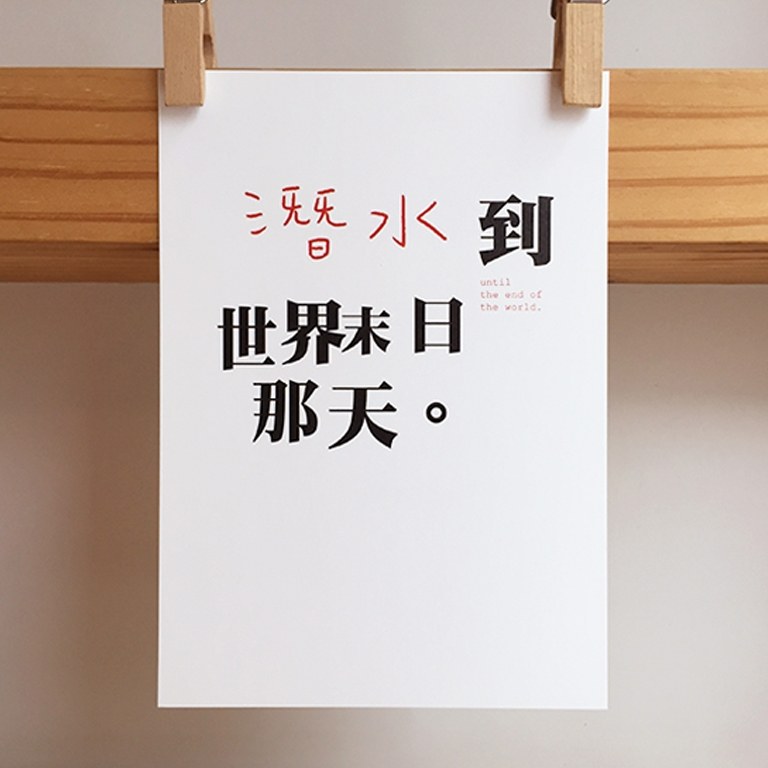 潛水到
until
the end of
the world.
世界末日
那天。